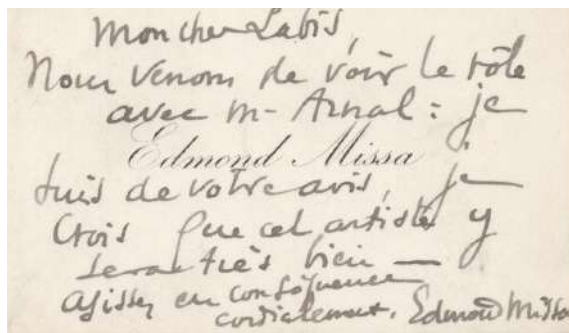 Mon cher Labis,
Nous venons de voir le rôle
avec M. Arnal : je
Edmond Missa
suis de votre avis, je
crois que cet artiste y
sera très bien —
agissez en conséquence
cordialement. Edmond Missa